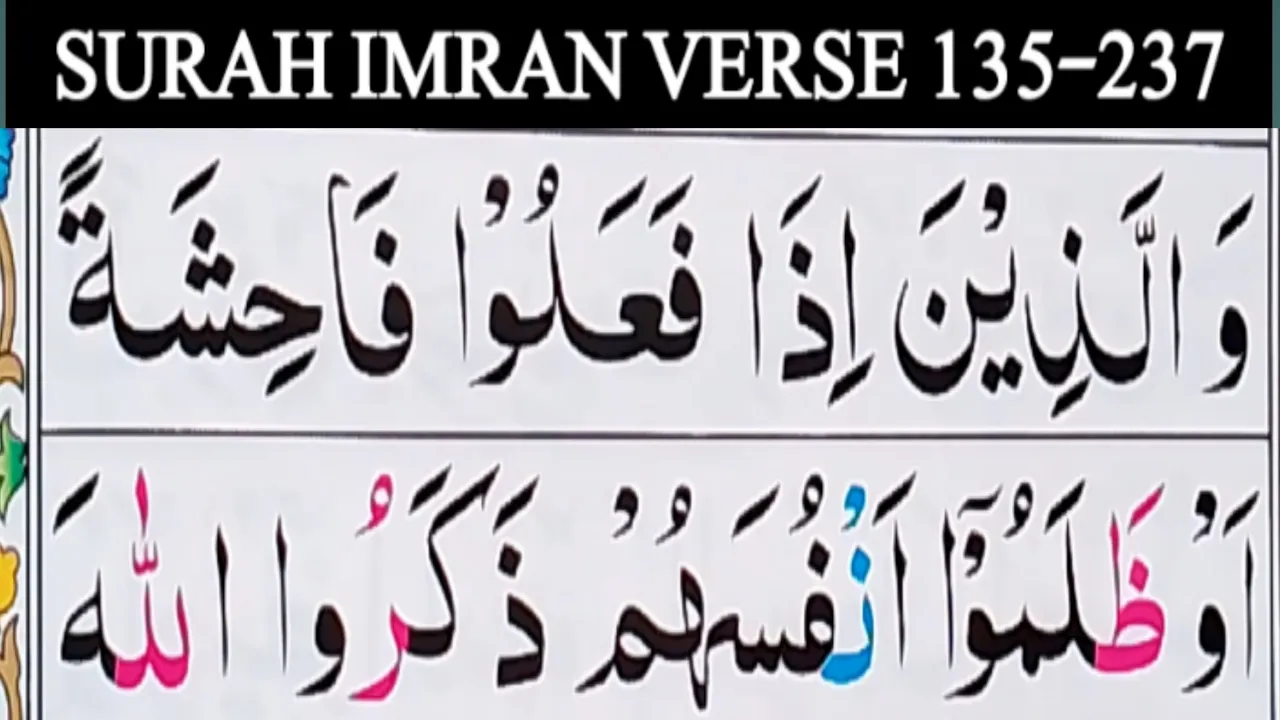 SURAH IMRAN VERSE 135-237
وَالَّذِيْنَ اِذَا فَعَلُوْا فَاحِشَةً
اَوْ ظَلَمُوْۤا اَنْفُسَهُمْ ذَكَرُوا اللّٰهَ